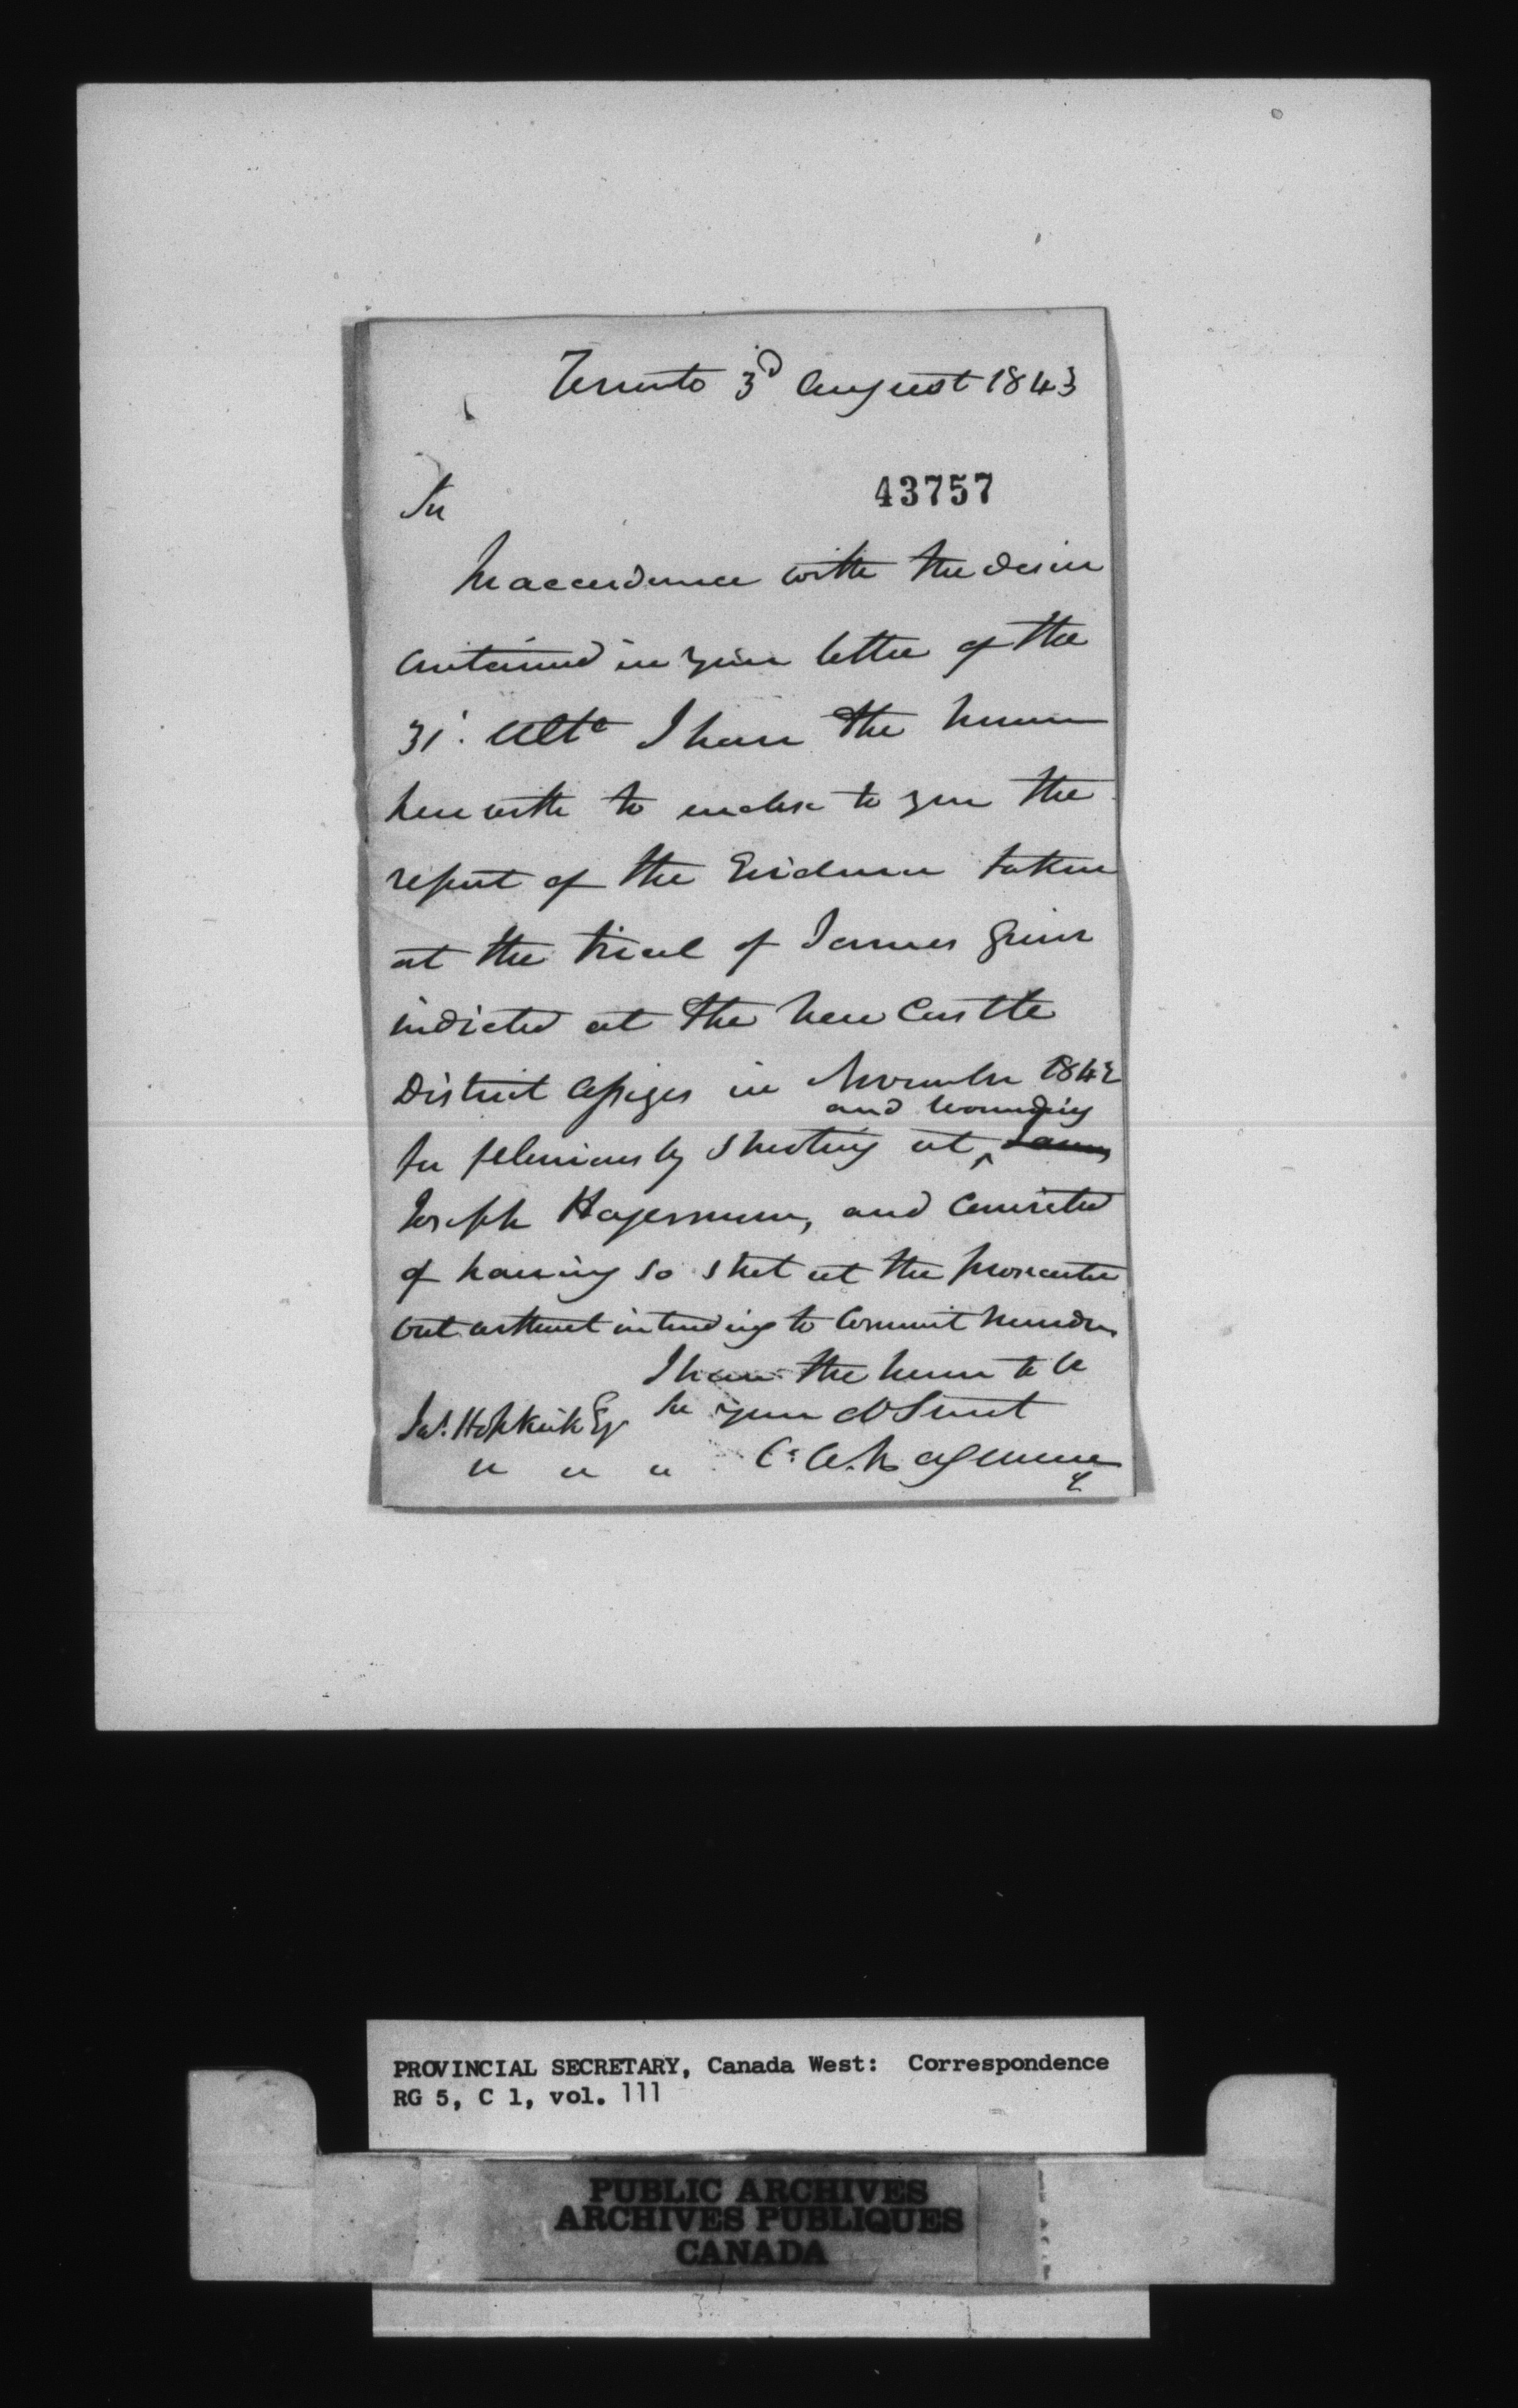 Toronto 3d August 1843
43757
Sir
In accordance with the desire
contained in your letter of the
31st. Ulto I have the honor
herewith to enclose to you the
report of the Evidence taken
at the trial of James Grier
indicted at the New Castle
District Assizes in November 1842
and wounding
for feloniously shooting at ^ James
Joseph Hagerman, and convicted
of having so shot at the prosecutor
but without intending to commit murder
I have the honor to be
Sir your Ob Servt
Jas. Hopkirk Esqr
C. A. Hagerman
PROVINCIAL SECRETARY, Canada West: Correspondence
RG 5, C 1, vol. 111
PUBLIC ARCHIVES
ARCHIVES PUBLIQUES
CANADA